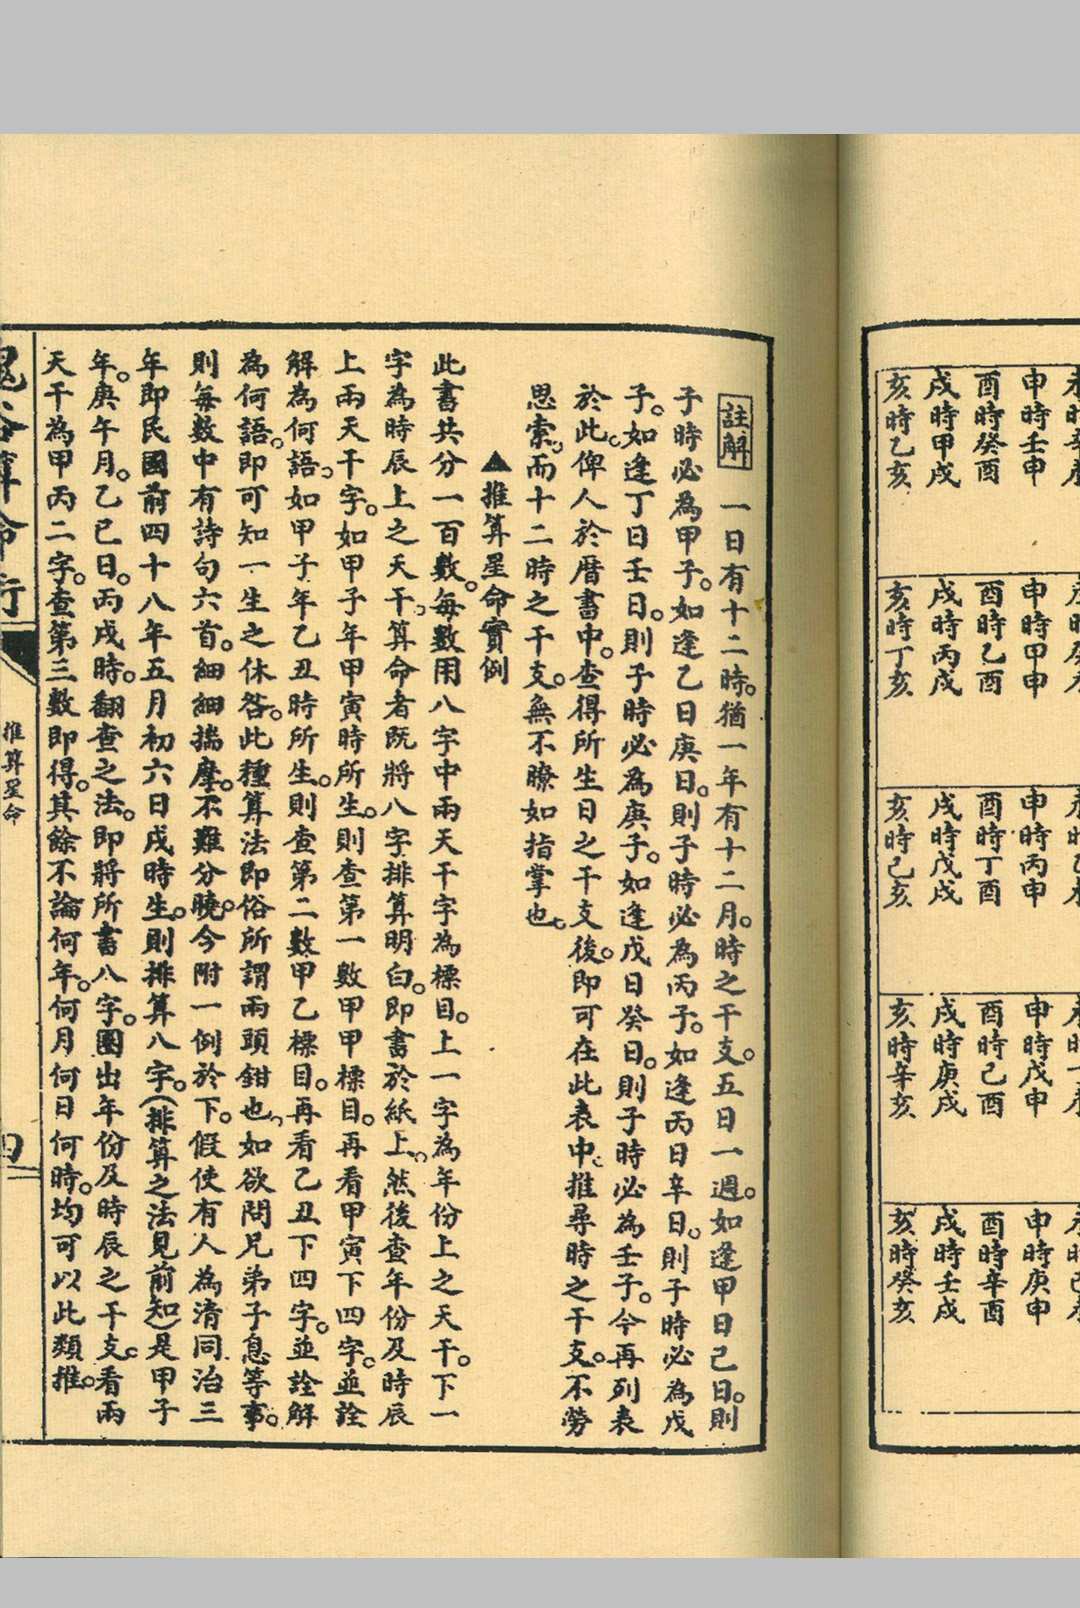 申時壬申 申時甲申 申時丙申 申時戊申 申時庚申
酉時癸酉 酉時乙酉 酉時丁酉 酉時己酉 酉時辛酉
戌時甲戌 戌時丙戌 戌時戊戌 戌時庚戌 戌時壬戌
亥時乙亥 亥時丁亥 亥時己亥 亥時辛亥 亥時癸亥
註解 一日有十二時。猶一年有十二月。時之干支。五日一週。如逢甲日己日。則
子時必為甲子。如逢乙日庚日。則子時必為丙子。如逢丙日辛日。則子時必為戊
子。如逢丁日壬日。則子時必為庚子。如逢戊日癸日。則子時必為壬子。今再列表
於此。俾人於曆書中。查得所生日之干支後。即可在此表中。推尋時之干支。不勞
思索。而十二時之干支。無不瞭如指掌也。
▲推算星命實例
此書共分一百數。每數用八字中兩天干字為標目。上一字為年份上之天干。下一
字為時辰上之天干。算命者既將八字排算明白。即書於紙上。然後查年份及時辰
上兩天干字。如甲子年甲寅時所生。則查第一數甲甲標目。再看甲寅下四字。並詮
解為何語。如甲子年乙丑時所生。則查第二數甲乙標目。再看乙丑下四字。並詮解
為何語。即可知一生之休咎。此種算法即俗所謂兩頭鉗也。如欲問兄弟子息等事。
則每數中有詩句六首。細細揣摩。不難分曉。今附一例於下。假使有人為清同治三
年即民國前四十八年五月初六日戌時生。則排算八字。（排算之法見前知）是甲子
年。庚午月。乙巳日。丙戌時。翻查之法。即將所書八字。圈出年份及時辰之干支。看兩
天干為甲丙二字。查第三數即得。其餘不論何年。何月何日何時。均可以此類推。
推算星命